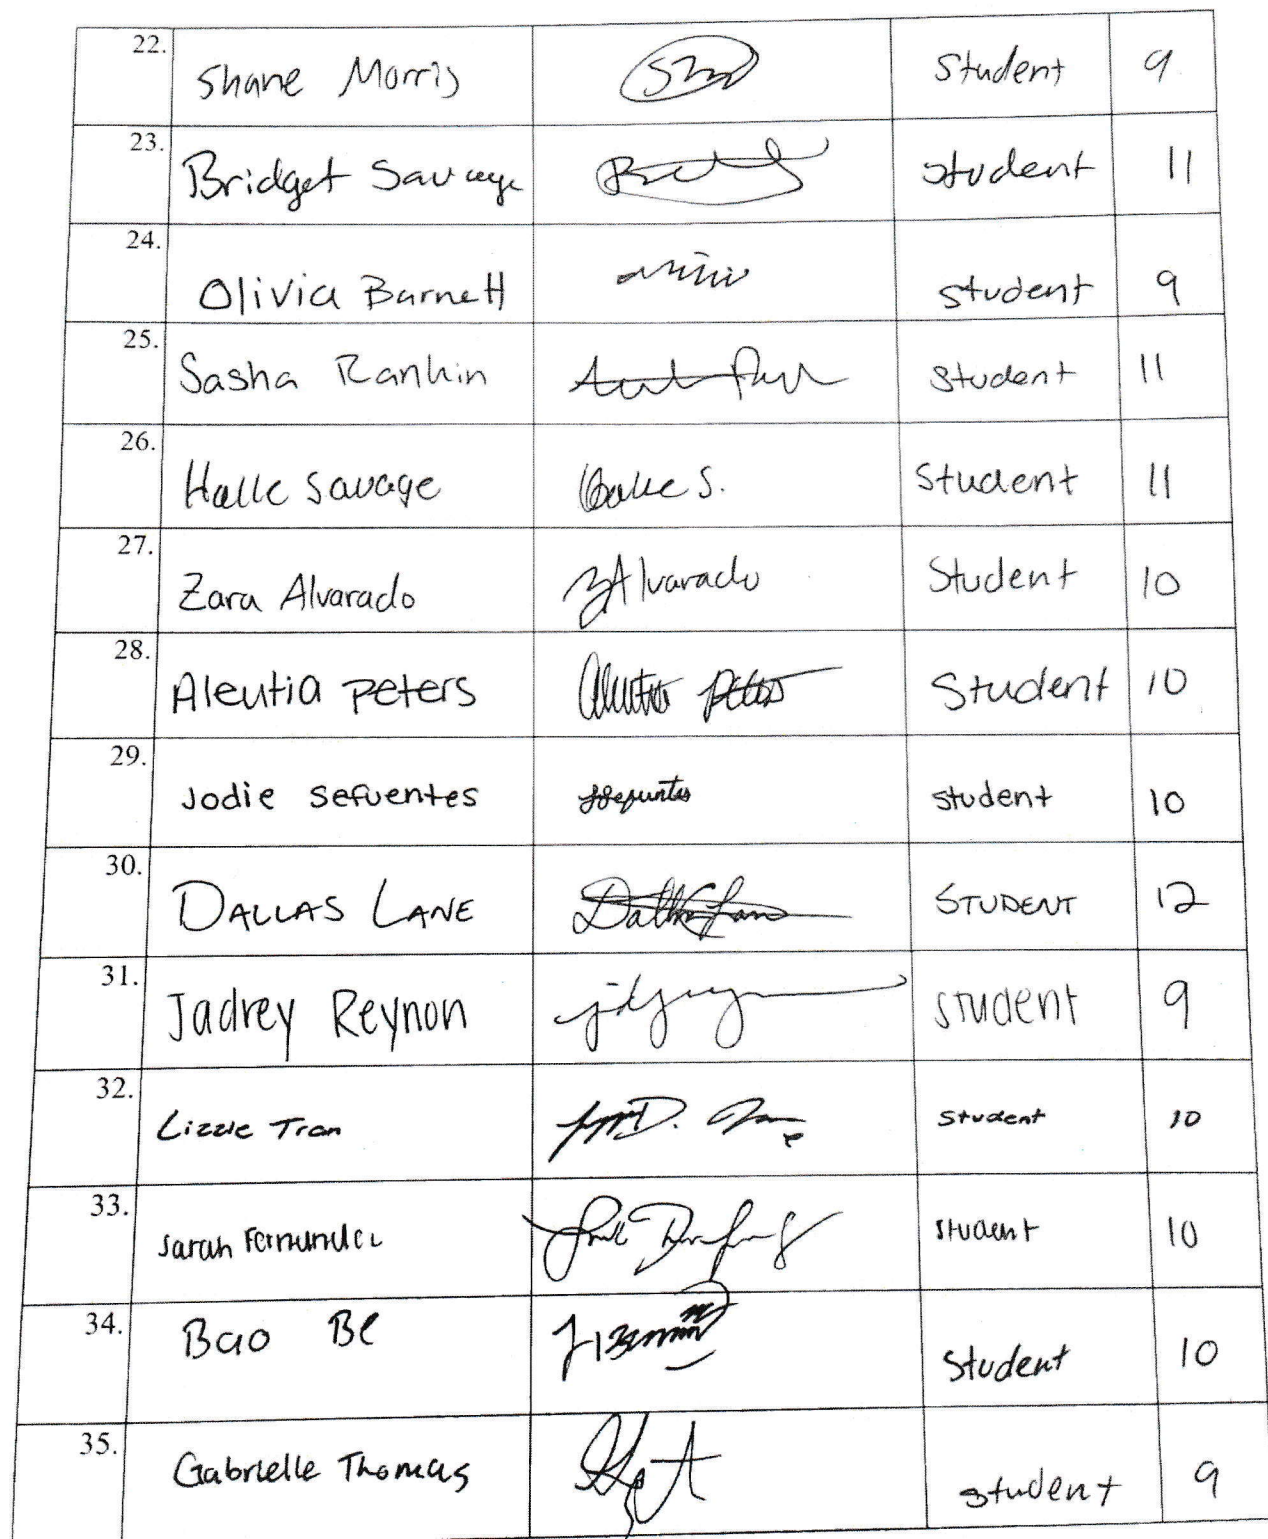 22. Shane Morris Student 9
23. Bridget Savage student 11
24. Olivia Barnett student 9
25. Sasha Rankin student 11
26. Halle Savage Bake S. Student 11
27. Zara Alvarado ZAlvarado Student 10
28. Aleutia Peters Aleutia Peters Student 10
29. Jodie Sefuentes JSefuentes student 10
30. DALLAS LANE Dallas Lane STUDENT 12
31. Jadrey Reynon student 9
32. Lizzie Tran student 10
33. Sarah Fernandez student 10
34. Bao Be Student 10
35. Gabrielle Thomas student 9